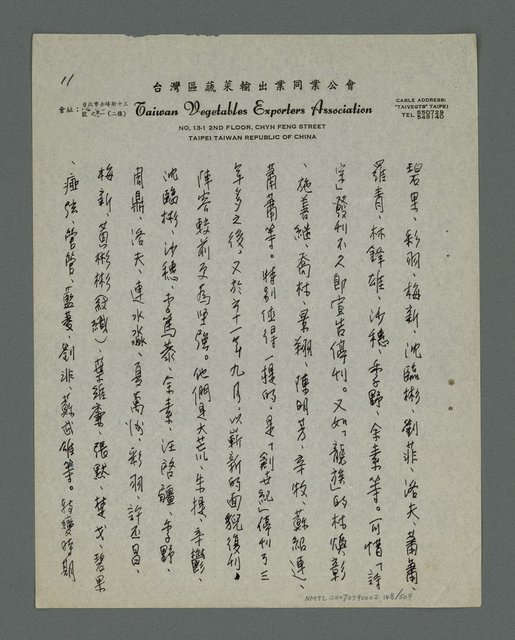 11
台灣區蔬菜輸出業同業公會
會址：台北市赤峰街十三號之一(二樓)
Taiwan Vegetables Exporters Association
NO, 13-1 2ND FLOOR, CHYH FENG STREET
TAIPEI TAIWAN REPUBLIC OF CHINA
CABLE ADDRESS:
"TAIVEGTS" TAIPEI
TEL.
碧果、彩羽、梅新、沈臨彬、劉菲、洛夫、蕭蕭、
羅青、林鋒雄、沙穗、季野、余素等。可惜「詩
宗」發刊不久即宣告停刊。又如「龍族」的林煥彰
、施善繼、喬林、景翔、陳明芳、辛牧、蘇紹連、
蕭蕭等。特別值得一提的，是「創世紀」停刊了三
年多之後，又於六十一年九月，以嶄新的面貌復刊。
陣容較前更為堅強。他們是大荒、朱提、辛鬱、
沈臨彬、沙穗、李篤恭、余素、汪啓疆、季野、
周鼎、洛夫、連水淼、夏萬洲、彩羽、許丕昌、
梅新、黃彬彬、葉維廉、張默、楚戈、碧果
、瘂弦、管管、藍菱、劉菲、蘇武雄等。轉變時期
NMTL 20070590002, 148/569